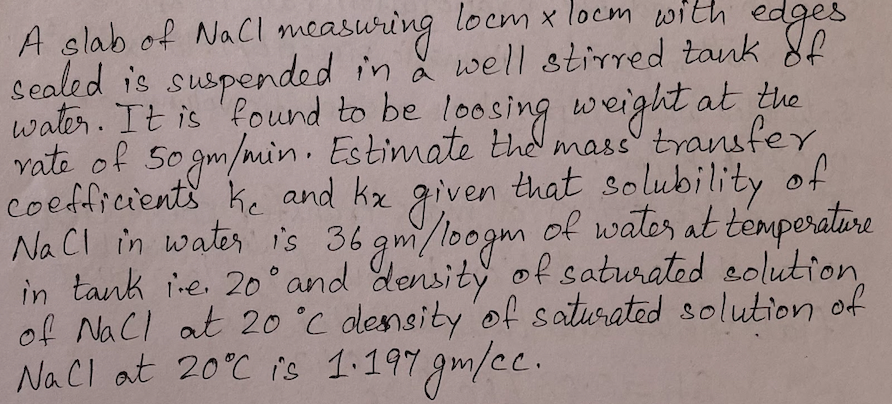 A slab of NaCl measuring 10cm x 10cm with edges
sealed is suspended in a well stirred tank of
water. It is found to be loosing weight at the
rate of 50gm/min. Estimate the mass transfer
coefficients kc and kx given that solubility of
NaCl in water is 36 gm/100gm of water at temperature
in tank i.e. 20° and density of saturated solution
of NaCl at 20 °C density of saturated solution of
NaCl at 20°C is 1.197 gm/cc.